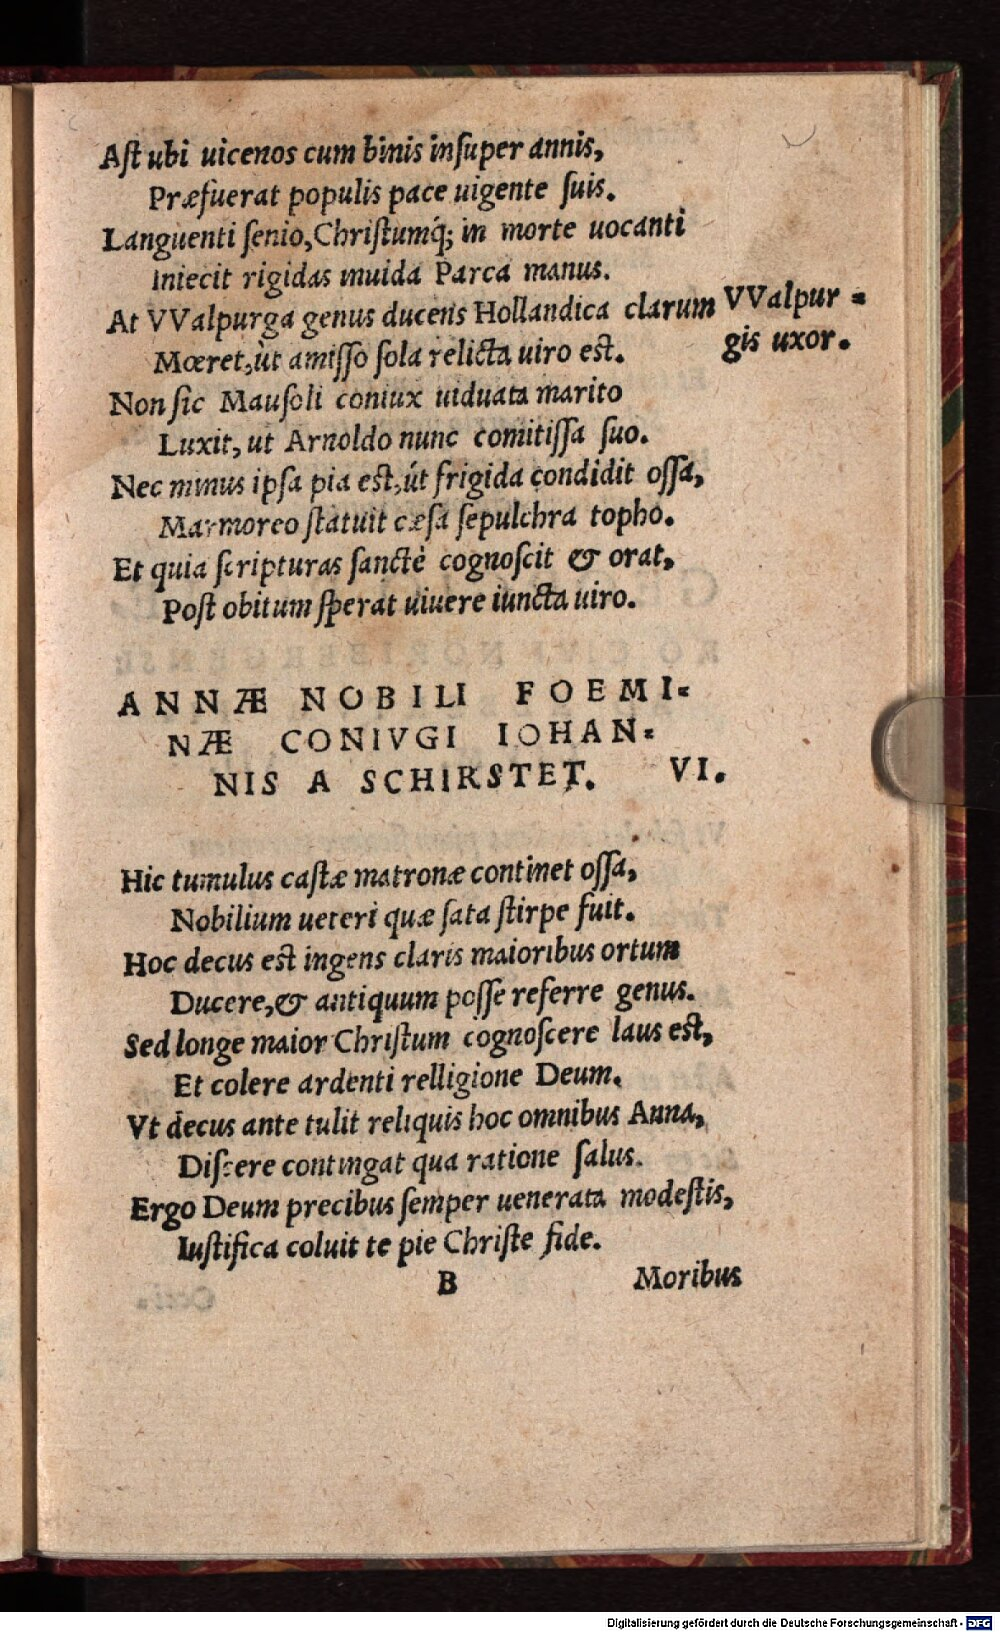 Ast ubi uicenos cum binis insuper annis,
Præfuerat populis pace uigente suis.
Languenti senio, Christumq́; in morte uocanti
Iniecit rigidas inuida Parca manus.
At VValpurga genus ducens Hollandica clarum
VValpur=
gis uxor.
Mœret, ùt amisso sola relicta uiro est.
Non sic Mausoli coniux uiduata marito
Luxit, ut Arnoldo nunc comitissa suo.
Nec minus ipsa pia est, út frigida condidit ossa,
Marmoreo statuit cæsa sepulchra topho.
Et quia scripturas sanctè cognoscit & orat,
Post obitum sperat uiuere iuncta uiro.
ANNÆ NOBILI FOEMI=
NÆ CONIVGI IOHAN=
NIS A SCHIRSTET. VI.
Hic tumulus castæ matronæ continet ossa,
Nobilium ueteri quæ sata stirpe fuit.
Hoc decus est ingens claris maioribus ortum
Ducere, & antiquum posse referre genus.
Sed longe maior Christum cognoscere laus est,
Et colere ardenti relligione Deum.
Vt decus ante tulit reliquis hoc omnibus Anna,
Discere contingat qua ratione salus.
Ergo Deum precibus semper uenerata modestis,
Iustifica coluit te pie Christe fide.
B Moribus
Digitalisierung gefördert durch die Deutsche Forschungsgemeinschaft - DFG